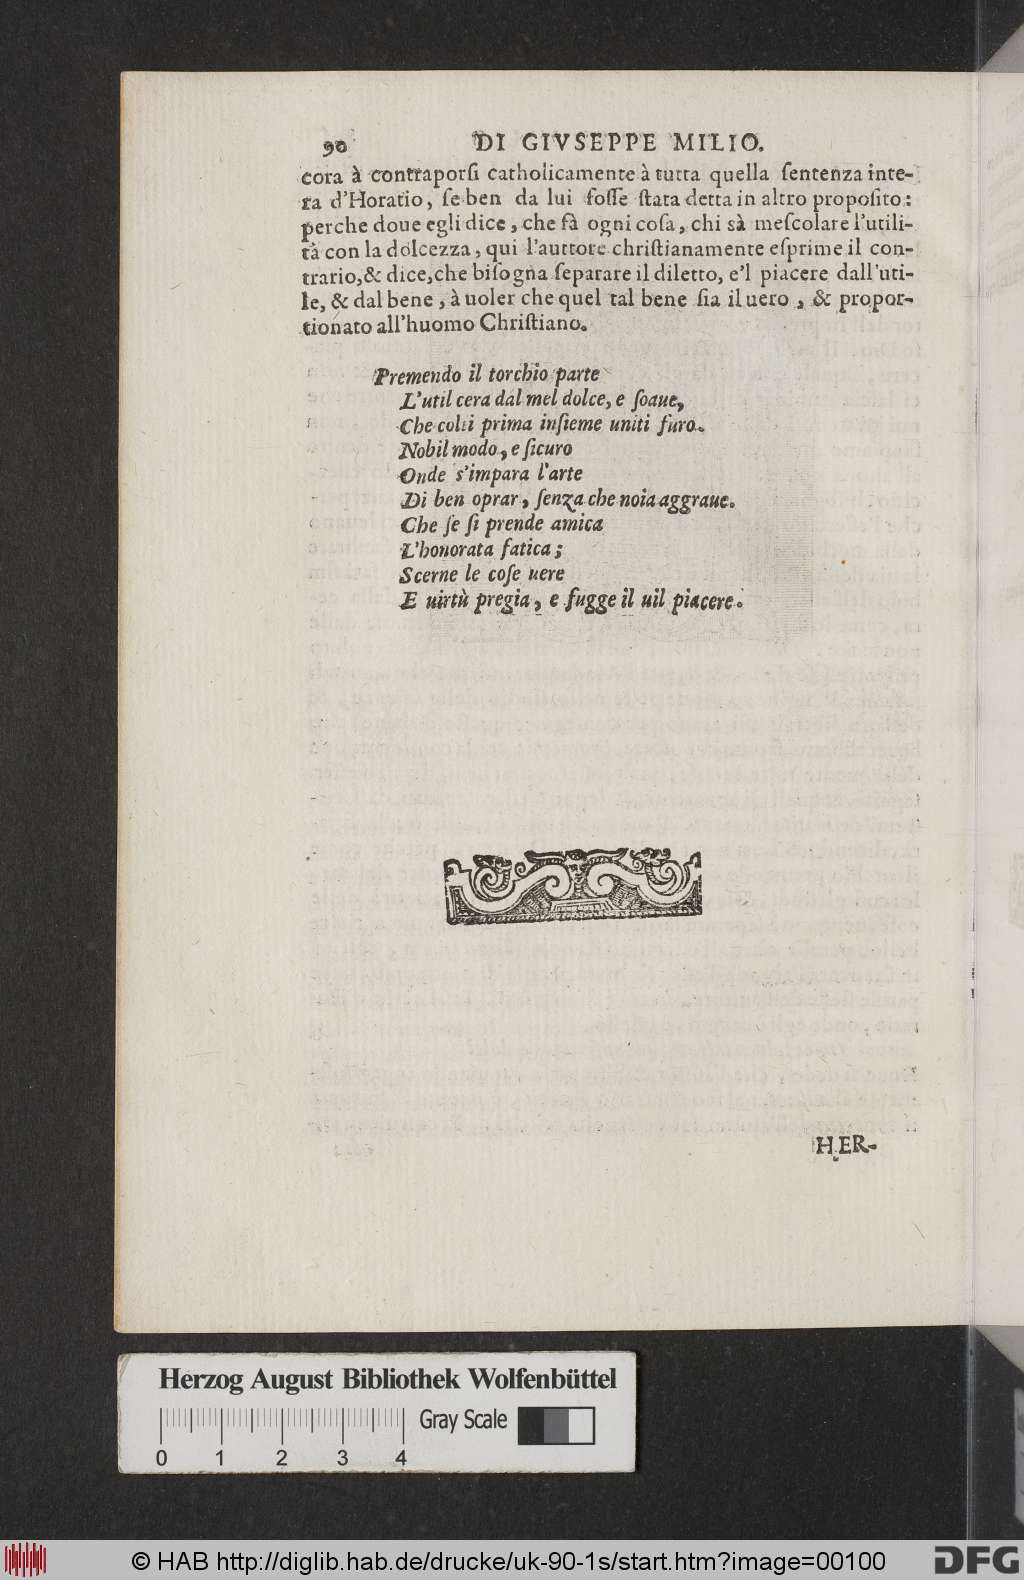 90 DI GIVSEPPE MILIO.
cora à contraporſi catholicamente à tutta quella ſentenza inte-
ra d'Horatio, ſe ben da lui foſſe ſtata detta in altro propoſito:
perche doue egli dice, che fà ogni coſa, chi sà meſcolare l'utili-
tà con la dolcezza, qui l'auttore chriſtianamente eſprime il con-
trario,& dice,che biſogna ſeparare il diletto, e'l piacere dall'uti-
le, & dal bene, à uoler che quel tal bene ſia il uero, & propor-
tionato all'huomo Chriſtiano.
Premendo il torchio parte
L'util cera dal mel dolce, e ſoaue,
Che colti prima inſieme uniti furo.
Nobil modo, e ſicuro
Onde s'impara l'arte
Di ben oprar, ſenza che noia aggraue.
Che ſe ſi prende amica
L'honorata fatica;
Scerne le coſe uere
E uirtù pregia, e fugge il uil piacere.
HER-
Herzog August Bibliothek Wolfenbüttel
Gray Scale
0 1 2 3 4
© HAB http://diglib.hab.de/drucke/uk-90-1s/start.htm?image=00100
DFG